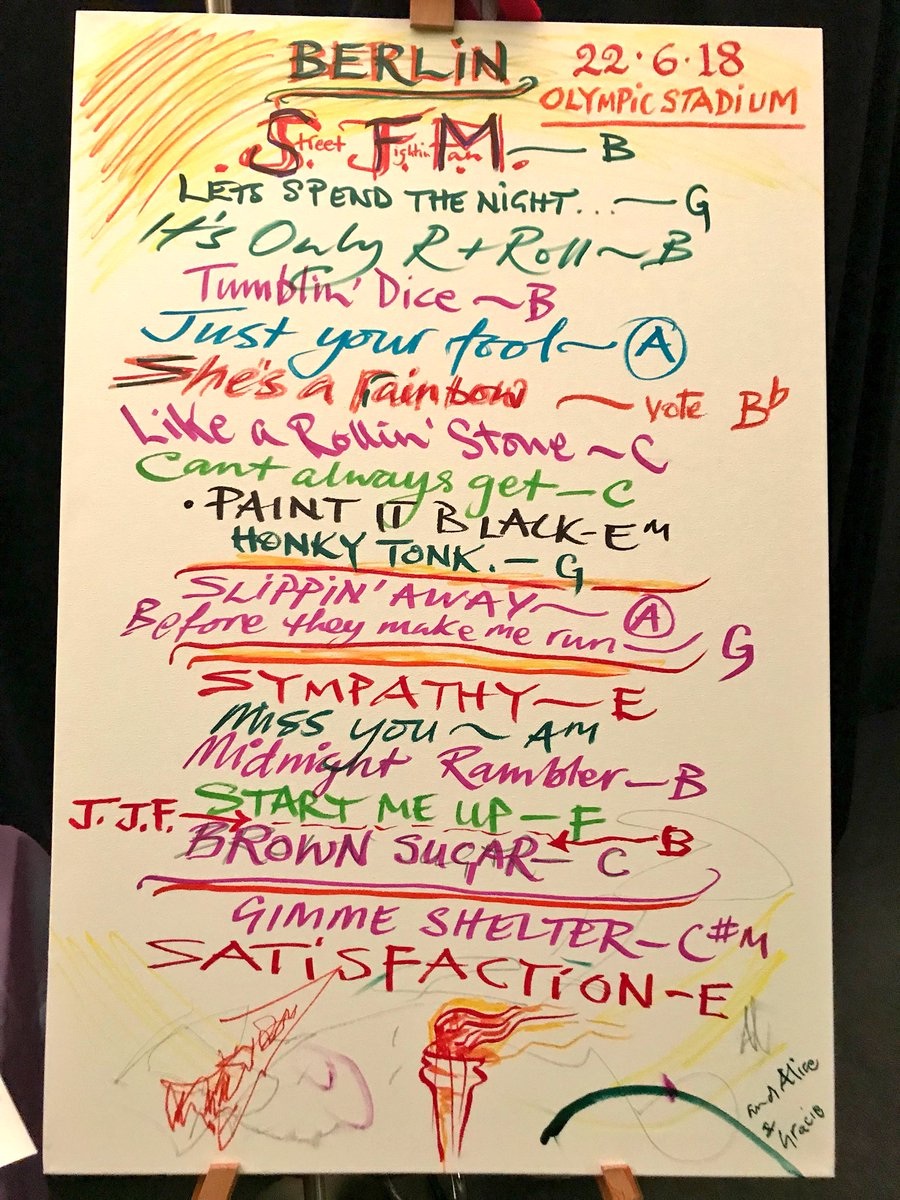 BERLIN 22·6·18
OLYMPIC STADIUM
Street Fightin' Man. — B
LETS SPEND THE NIGHT... — G
It's Only R + Roll ~ B
Tumblin' Dice ~ B
Just your fool ~ A
She's a Rainbow ~ vote Bb
Like a Rollin' Stone ~ C
Cant always get — C
• PAINT IT BLACK - EM
HONKY TONK. — G
SLIPPIN' AWAY ~ A
Before they make me run — G
SYMPATHY — E
Miss you ~ AM
Midnight Rambler — B
START ME UP — F
J.J.F. → ← B
BROWN SUGAR — C
GIMME SHELTER — C#M
SATISFACTION — E
and Alice
& Gracie